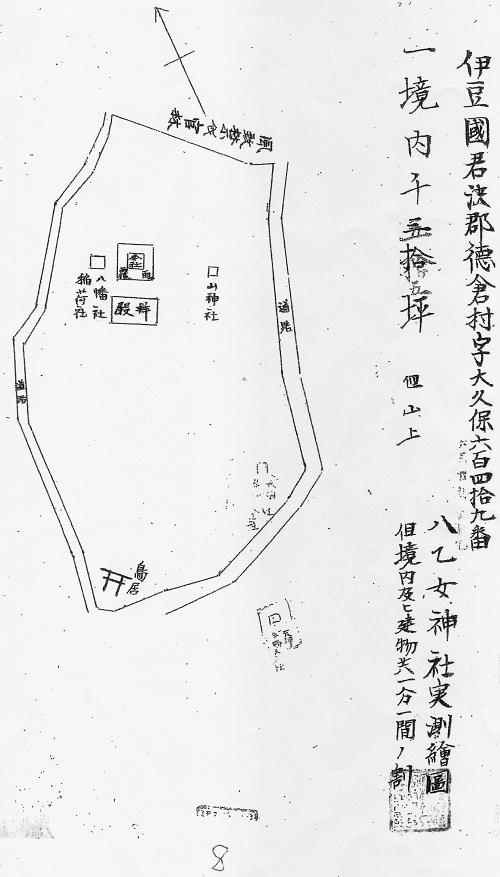 伊豆國君沢郡德倉村字大久保六百四拾九番
八乙女神社実測繪圖
一境内千五拾五坪 但山上
但境内及ヒ建物共一分一間ノ割
道路
山神社
本社
雨覆
拝殿
八幡社
稲荷社
道路
鳥居
8